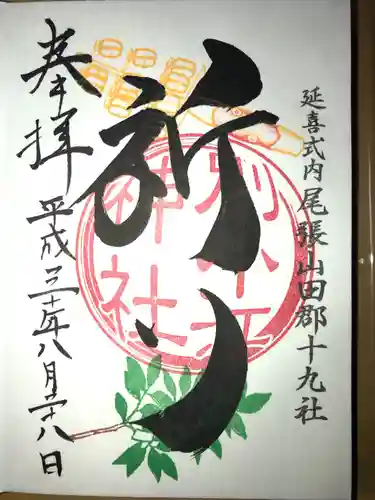 延喜式内尾張山田郡十九社
祈り
別小江神社
奉拝
平成三十年八月二十八日